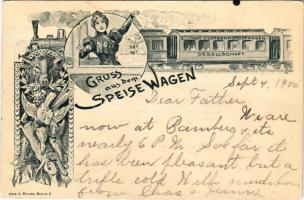 EISENBAHNSPEISEWAGEN
GESELLSCHAFT
GRUSS
aus dem
SPEISE WAGEN
Sept 4, 1900
Dear Father,
We are
now at Bamberg & its
nearly 6 P.M. So far it
has been pleasant, but a
trifle cold. With much love
from Chas & Jennie